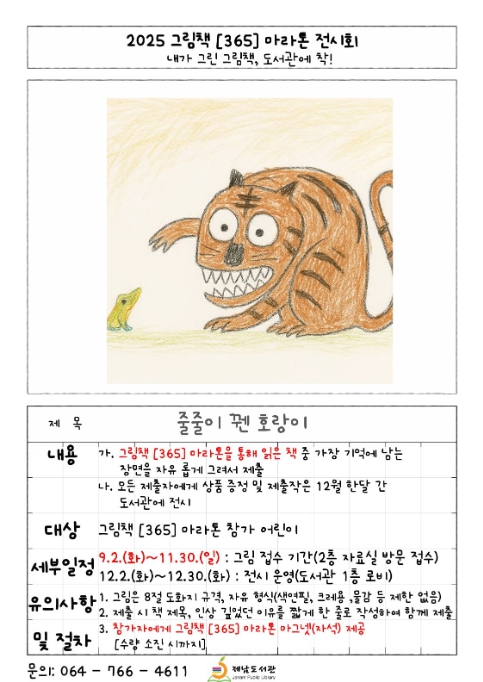 2025 그림책 [365] 마라톤 전시회
내가 그린 그림책, 도서관에 착!
제 목
줄줄이 꿴 호랑이
내용
가. 그림책 [365] 마라톤을 통해 읽은 책 중 가장 기억에 남는
장면을 자유 롭게 그려서 제출
나. 모든 제출자에게 상품 증정 및 제출작은 12월 한달 간
도서관에 전시
대상
그림책 [365] 마라톤 참가 어린이
세부일정
9.2.(화)~11.30.(일) : 그림 접수 기간(2층 자료실 방문 접수)
12.2.(화)~12.30.(화) : 전시 운영(도서관 1층 로비)
유의사항
및 절차
1. 그림은 8절 도화지 규격, 자유 형식(색연필, 크레용 ,물감 등 제한 없음)
2. 제출 시 책 제목, 인상 깊었던 이유를 짧게 한 줄로 작성하여 함께 제출
3. 참가자에게 그림책 [365] 마라톤 마그넷(자석) 제공
[수량 소진 시까지]
문의: 064 - 766 - 4611
제남도서관
Jenam Public Library